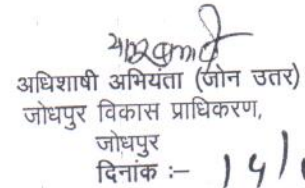 अधिशाषी अभियंता (जोन उतर)
जोधपुर विकास प्राधिकरण,
जोधपुर
दिनांक :– 14/